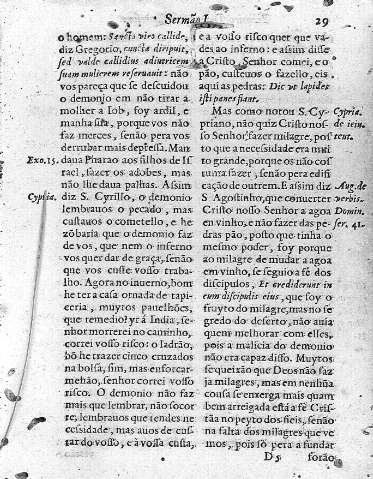 Sermão I.
29
o homem: Sancta viro callide,
diz Gregorio, cuncta diripuit,
sed valde callidius adiutricem
suam mulierem reseruauit: não
vos pareça que se descuidou
o demonio em não tirar a
molher a Iob, foy ardil, e
manha sua, porque vos não
faz merces, senão pera vos
derrubar mais depressa. Man
Exo. 15.
daua Pharao aos filhos de Is
rael, fazer os adobes, mas
não lhe daua palhas. Assim
Cypria.
diz S. Cyrillo, o demonio
lembrauos o pecado, mas
custauos o cometello, e he
zõbaria que o demonio faz
de vos, que nem o inferno
vos quer dar de graça, senão
que vos custe vosso traba-
lho. Agora no inuerno, bom
he ter a casa ornada de tapi-
ceria, muytos panelhões,
que remedio? yr á India, se-
nhor morrerei no caminho,
correi vosso risco: o ladrão,
bõ he trazer cinco cruzados
na bolsa, sim, mas enforcar-
mehão, senhor correi vosso
risco. O demonio não faz
mais que lembrar, não socor
re, lembrauos que tendes ne
cessidade, mas auos de cus-
tar do vosso, e à vossa custa,
e a vosso risco quer que va-
des ao inferno: e assim disse
a Cristo, Senhor comei, e o
pão, custeuos o fazello, eis
aqui as pedras: Dic ut lapides
isti panes fiant.
Mas como notou S. Cy-
Cypria.
priano, não quiz Cristo nos-
de iein.
so Senhor, fazer milagre, pos
tent.
to que a necessidade era mui
to grande, porque os não cos
tuma fazer, senão pera edifi
cação de outrem. E assim diz
Aug. de
S. Agostinho, que conuerter
verbis.
Cristo nosso Senhor a agoa
Domin.
em vinho, e não fazer das pe-
ser. 41.
dras pão, posto que tinha o
mesmo poder, foy porque
ao milagre de mudar a agoa
em vinho, se seguio a fé dos
discipulos, Et crediderunt in
eum discipuli eius, que foy o
fruyto do milagre, mas no se
gredo do deserto, não auia
quem melhorar com elles,
pois a malicia do demonio
não era capaz disso. Muytos
se queixão que Deos não faz
ja milagres, mas em nenhũa
cousa se enxerga mais quam
bem arreigada está a fé Cris-
tãa no peyto dos fieis, senão
na falta dos milagres que ve
mos, pois só pera a fundar
D 5
forão